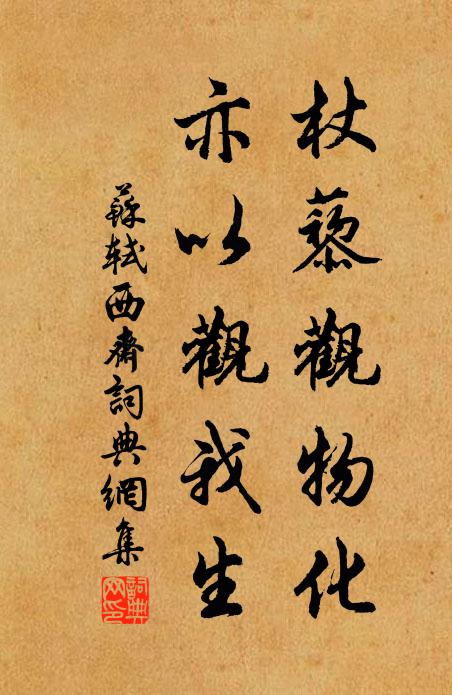 杖藜觀物化
亦以觀我生
蘇軾西齋詞典網集
詞典
网印